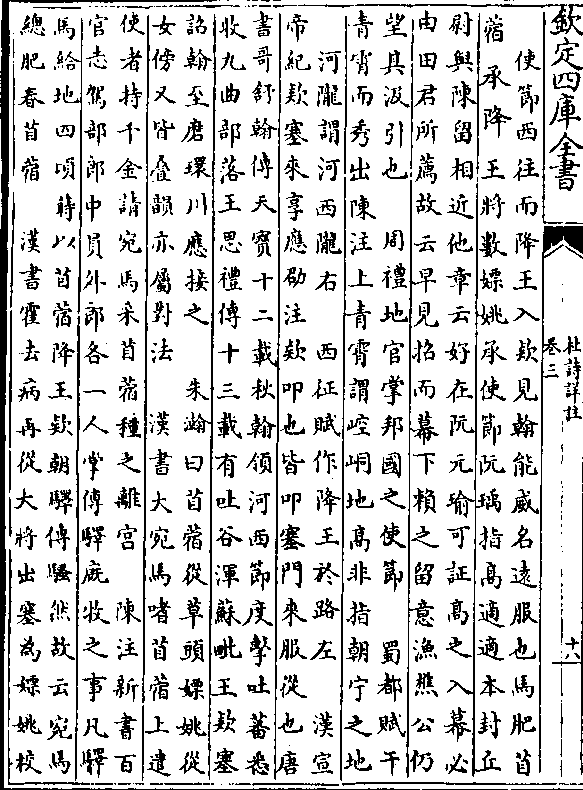 欽定四庫全書
杜詩詳註
卷三
十八
使節西往而降王入欵見翰能威名遠服也馬肥苜
蓿 承降 王將數嫖姚承使節阮瑀指高適適本封丘
尉與陳留相近他章云好在阮元瑜可証高之入幕必
由田君所薦故云早見招而幕下賴之留意漁樵公仍
望其汲引也 周禮地官掌邦國之使節 蜀都賦干
青霄而秀出陳注上青霄謂崆峒地高非指朝宁之地
河隴謂河西隴右 西征賦作降王於路左 漢宣
帝紀欵塞來享應劭注欵叩也皆叩塞門來服從也唐
書哥舒翰傳天寳十二載秋翰領河西節度擊吐蕃悉
收九曲部落王思禮傳十三載有吐谷渾蘇毗王欵塞
詔翰至磨環川應接之 朱瀚曰苜蓿從草頭嫖姚從
女傍又皆叠韻亦屬對法 漢書大宛馬嗜苜蓿上遣
使者持千金請宛馬采苜蓿種之離宮 陳注新書百
官志駕部郎中員外郎各一人掌傳驛廐牧之事凡驛
馬給地四頃蒔以苜蓿降王欵朝驛傳騷然故云宛馬
總肥春苜蓿 漢書霍去病再從大將出塞為嫖姚校